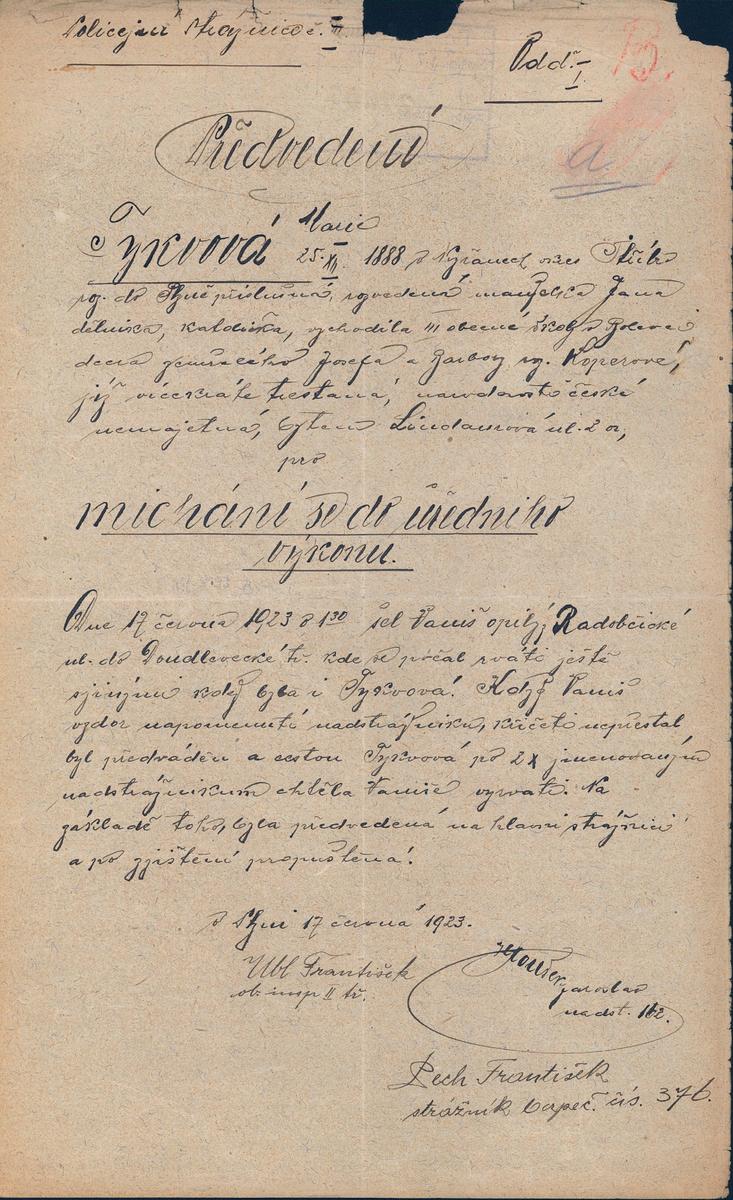 Policejní strážnice č. III
Odd. I.
13.
a
Předvedení
Marie
Tykvová 25. XII. 1888 v Kyšanech okres Stříbro
do Plzně příslušná, rozvedená manželka Jana
dělníka, katolička, vychodila III obecné školy v Bolevci
dcera zemřelého Josefa a Barbory roz. Koperové,
již vícekráte trestaná, národnosti české
nemajetná, bytem Lindaurova ul. 2 or,
pro
míchání se do úředního
výkonu.
Dne 17 června 1923 v 1 30 šel Vaniš opilý Radobčické
ul. do Doudlevecké tř. kde se počal rváti ještě
s jinými kdež byla i Tykvová. Když Vaniš
vzdor napomenutí nadstrážníka, křičeti nepřestal
byl předváděn a cestou Tykvová po 2x jmenovaným
nadstrážníkum chtěla Vaniše vyrvati. Na
základě toho, byla předvedená na hlavní strážnici
a po zjištění propuštěna.
V Plzni 17 června 1923.
Ubl František
ob. insp II tř.
Jaroslav
nadst. 162.
Pech František
strážník bezpeč. čís. 376.